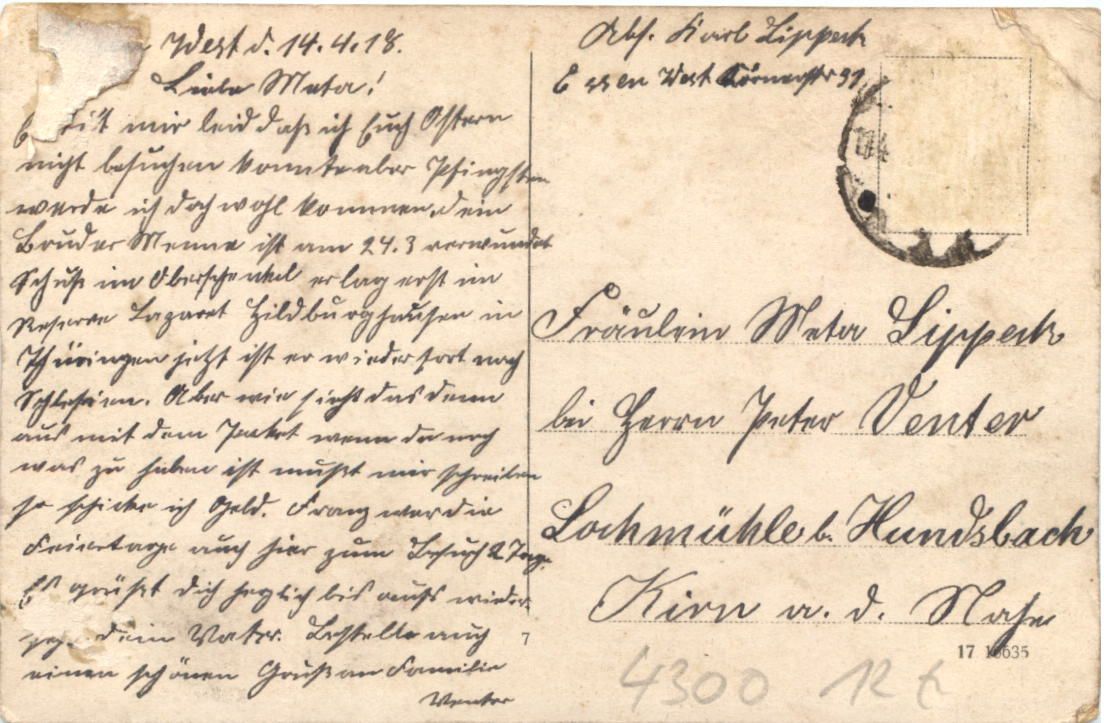 West d. 14.4.18.
Liebe Meta!
tut mir leid daß ich Euch Ostern
nicht besuchen konnte aber Pfingsten
werde ich doch wohl kommen. Dein
Bruder Menne ist am 24.3 verwundet
Schuß im Oberschenkel er lag erst im
Reserve Lazaret Hildburghausen in
Thüringen jetzt ist er wieder fort nach
Schlesien. Aber wie sieht das denn
aus mit dem Paket wenn da noch
was zu haben ist mußt mir schreiben
so schicke ich Geld. Franz war die
Feiertage auch hier zum Besuch 2 Tage.
Es grüßt dich herzlich bis aufs wieder
dein Vater. Bestelle auch
einen schönen Gruß an Familie
Venter
Abs. Karl Lippeck
Essen West Körnerstr 31
Fräulein Meta Lippeck
bei Herrn Peter Venter
Lochmühle b. Hundsbach
Kirn a. d. Nahe
7
17 16635
4300 12